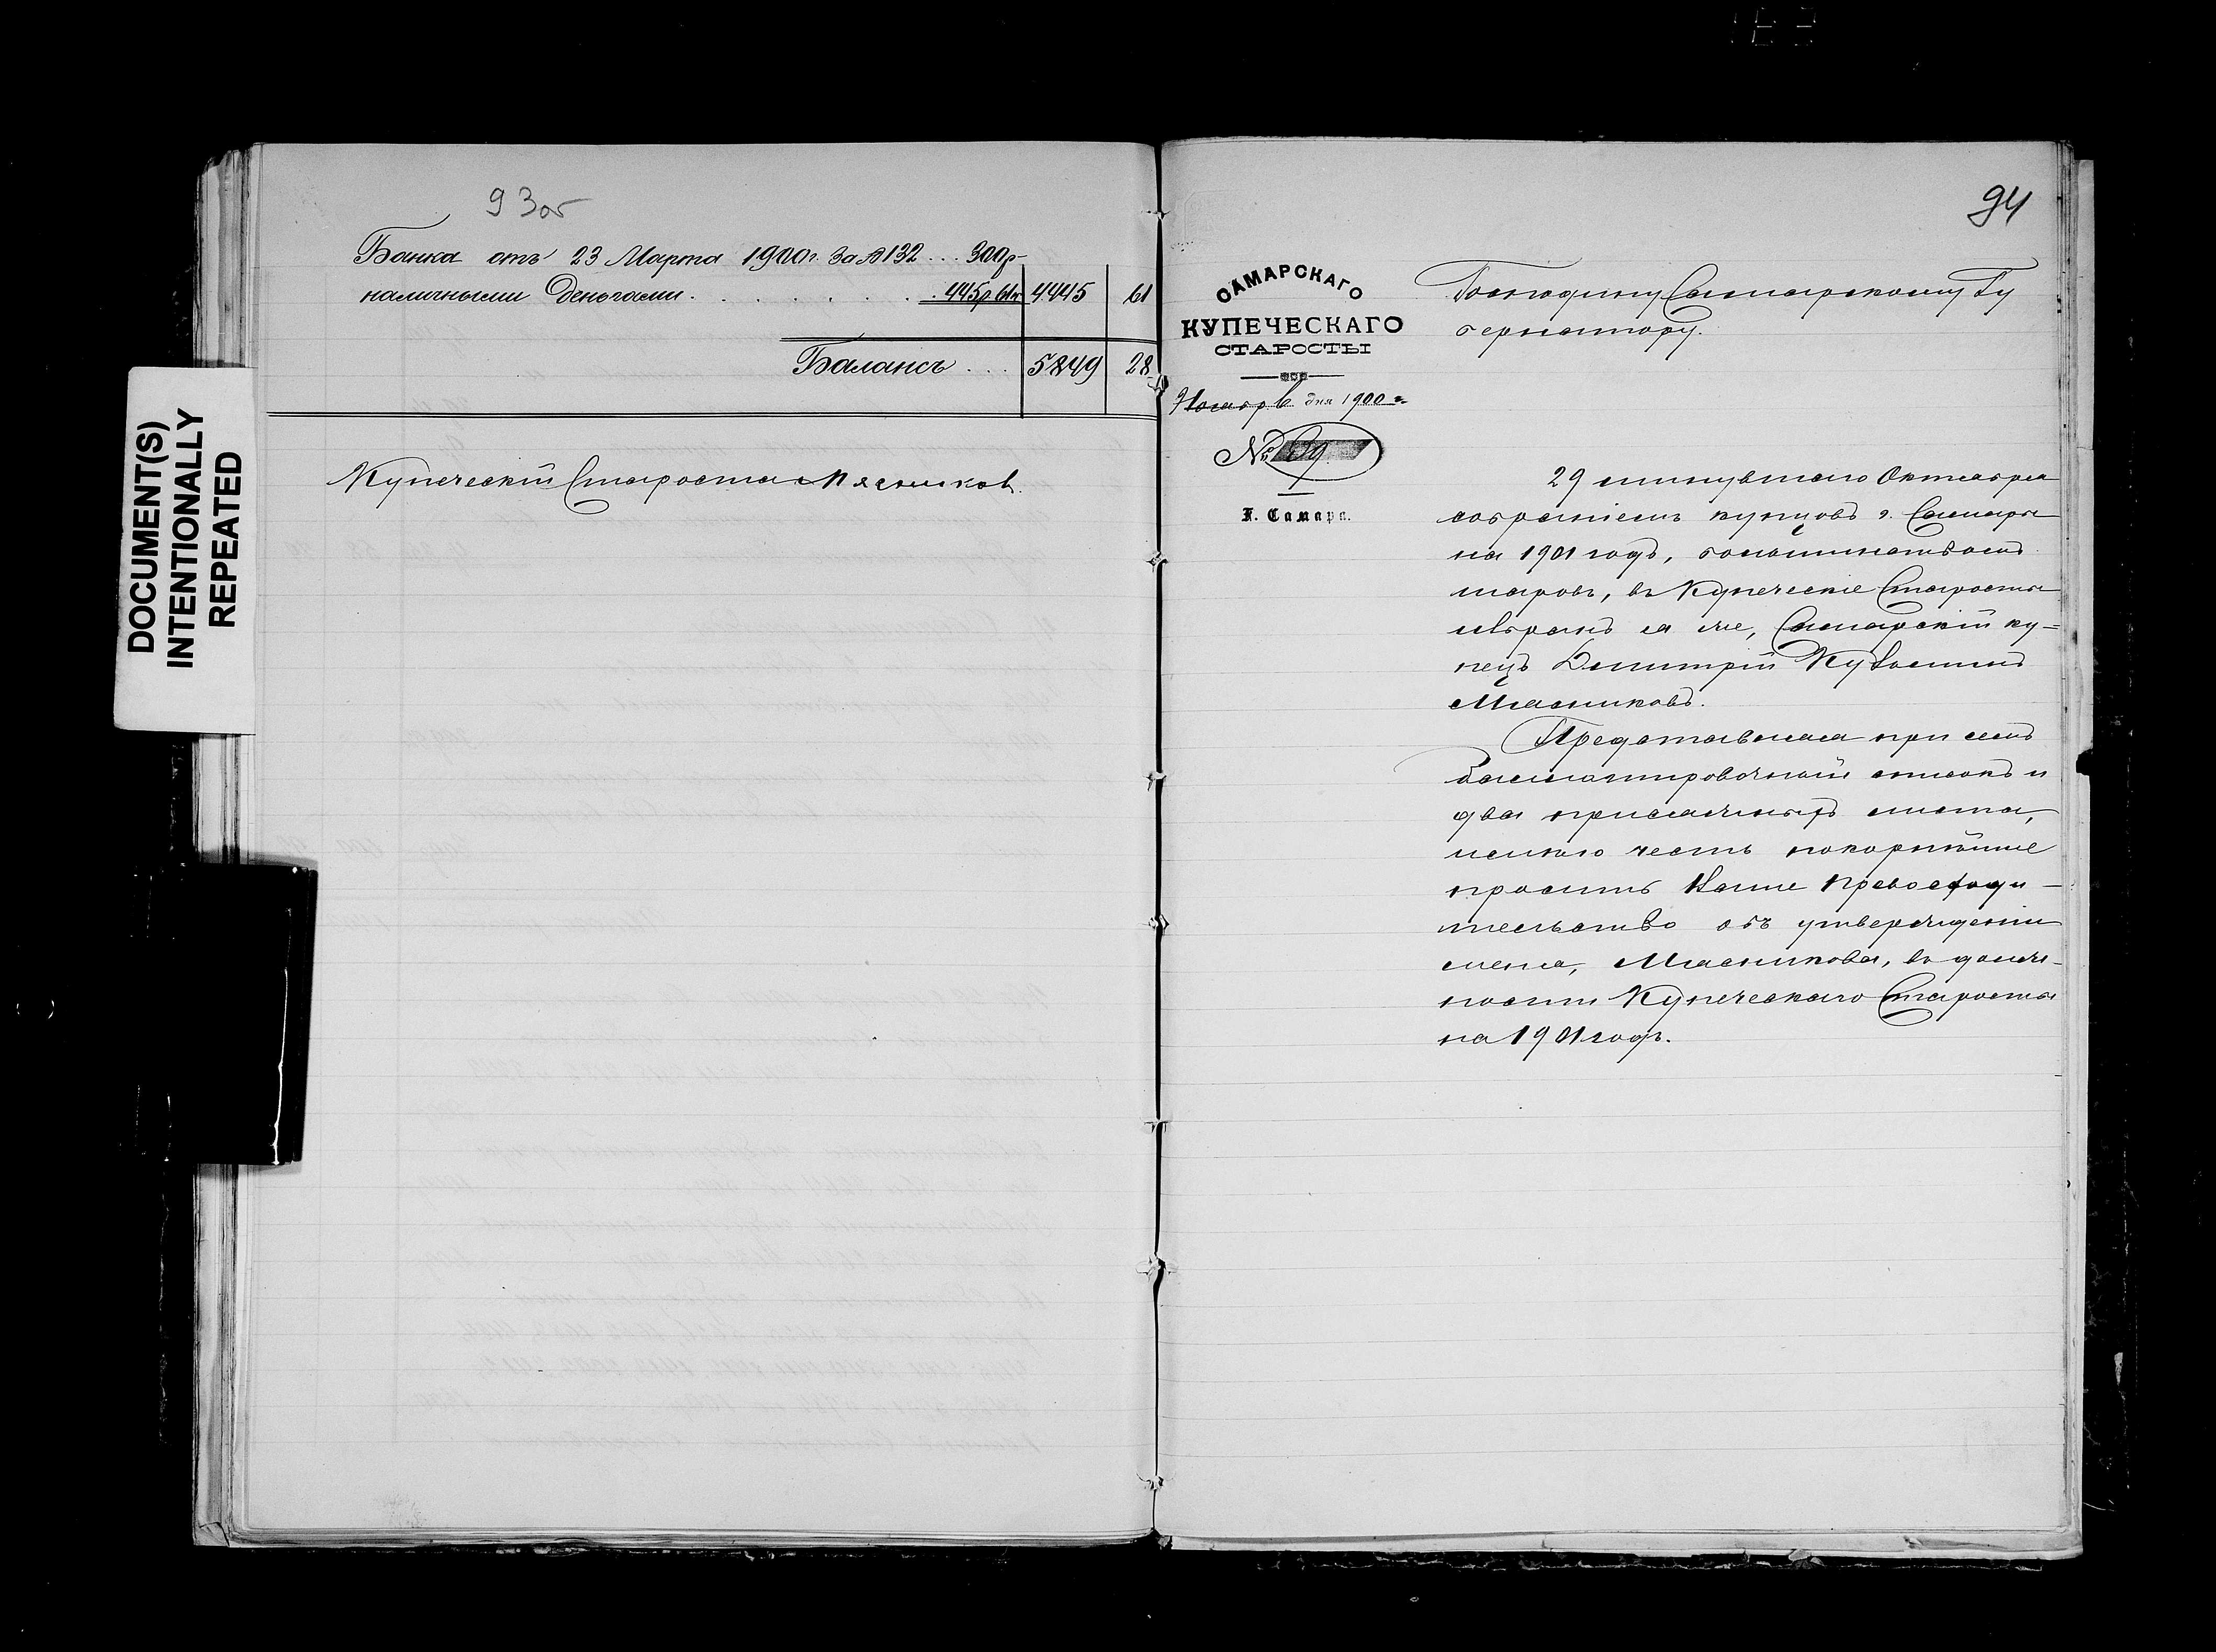 DOCUMENT(S)
INTENTIONALLY
REPEATED
93об
Банка отъ 23 Марта 1900г. за № 132 ... 300р
наличными деньгами . . . . . . . . 445р. 61к 4445 61
Балансъ . . . 5849 28
Купеческій Староста Мясников.
94
САМАРСКАГО
КУПЕЧЕСКАГО
СТАРОСТЫ
Ноябр 6 дня 1900 г.
№ 59
Г. Самара.
Господину Самарскому Гу
бернатору.
29 минувшаго Октября
собраніемъ купцовъ г. Самары
на 1901 годъ, большинствомъ
шаровъ, въ Купеческіе Старосты
избранъ я же, Самарскій ку=
пецъ Дмитрій Кузьминъ
Мясниковъ.
Представляя при семъ
баллотировочный списокъ и
два присяжныхъ листа,
имѣю честь покорнѣйше
просить Ваше Превосходи-
тельство объ утвержденіи
меня, Мясникова, въ долж-
ности Купеческаго Старосты
на 1901 годъ.